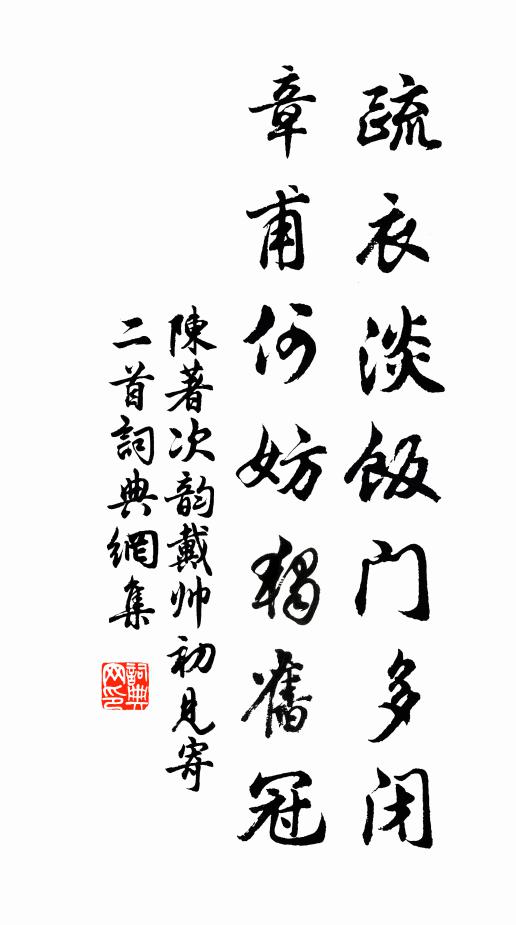 疏衣淡饭门多闭
章甫何妨独旧冠
陳著次韵戴帅初見寄
二首詞典網集
詞典网印